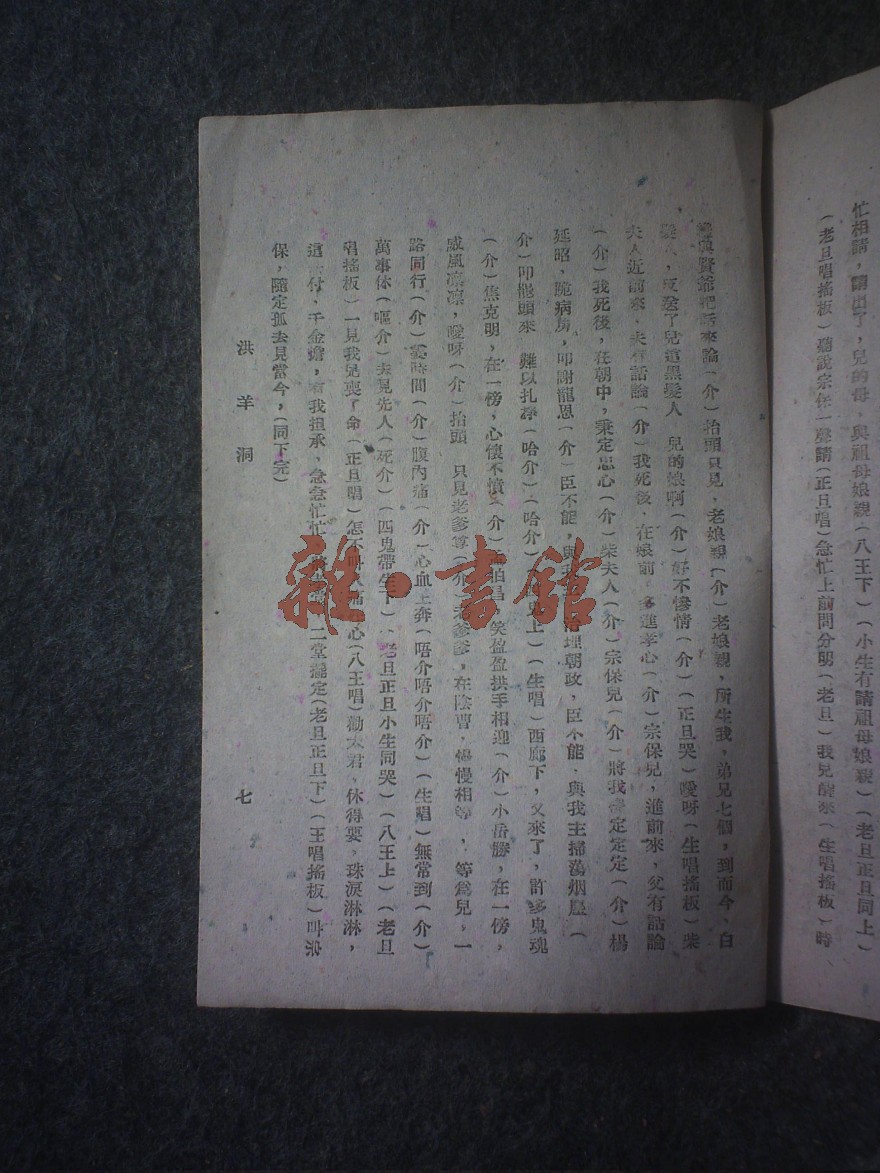 忙相請，請出了，兒的母，與祖母娘親（八王下）（小生有請祖母娘親）（老旦正旦同上）
（老旦唱搖板）聽說宗保一聲請（正旦唱）急忙上前問分明（老旦）我兒醒來（生唱搖板）時
與賢爺把話來論（介）抬頭只見，老娘親（介）老娘親，所生我，弟兄七個，到而今，白
反送了兒這黑髮人 兒的娘啊（介）好不慘情（介）（正旦哭）噯呀（生唱搖板）柴
夫人近前來，夫有話論（介）我死後，在娘前，多進孝心（介）宗保兒，進前來，父有話論
（介）我死後，在朝中，秉定忠心（介）柴夫人（介）宗保兒（介）將我 定定定（介）楊
延昭，跪病房，叩謝龍恩（介）臣不能，與我 治理朝政，臣不能，與我主掃蕩烟塵（
介）叩罷頭來 難以扎掙（哈介）（哈介） 上）（生唱）西廊下，又來了，許多鬼魂
（介）焦克明，在一傍，心懷不憤（介）孟伯昌，笑盈盈拱手相迎（介）小岳勝，在一傍，
威風凛凛，噯呀（介）抬頭 只見老爹尊（介）老爹爹，在陰曹，慢慢相等 ，等爲兒，一
路同行（介）霎時間（介）腹內痛（介）心血上奔（唔介唔介唔介）（生唱）無常到（介）
萬事休（嘔介）去見先人（死介）（四鬼帶生下）（老旦正旦小生同哭）（八王上）（老旦
唱搖板）一見我兒喪了命（正旦唱）怎不叫人痛 心（八王唱）勸太君，休得要，珠淚淋淋，
這 付，千金擔，有我担承，急急忙忙 二堂擺定（老旦正旦下）（王唱搖板）叫宗
保，隨定孤去見當今，（同下完）
洪羊洞
七
雜·書館